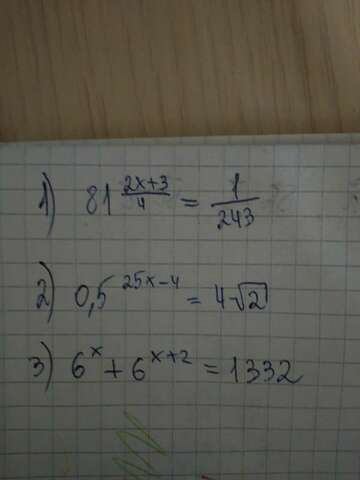 1) 81^((2x+3)/4) = 1/243
2) 0,5^(25x-4) = 4√2
3) 6^x + 6^(x+2) = 1332